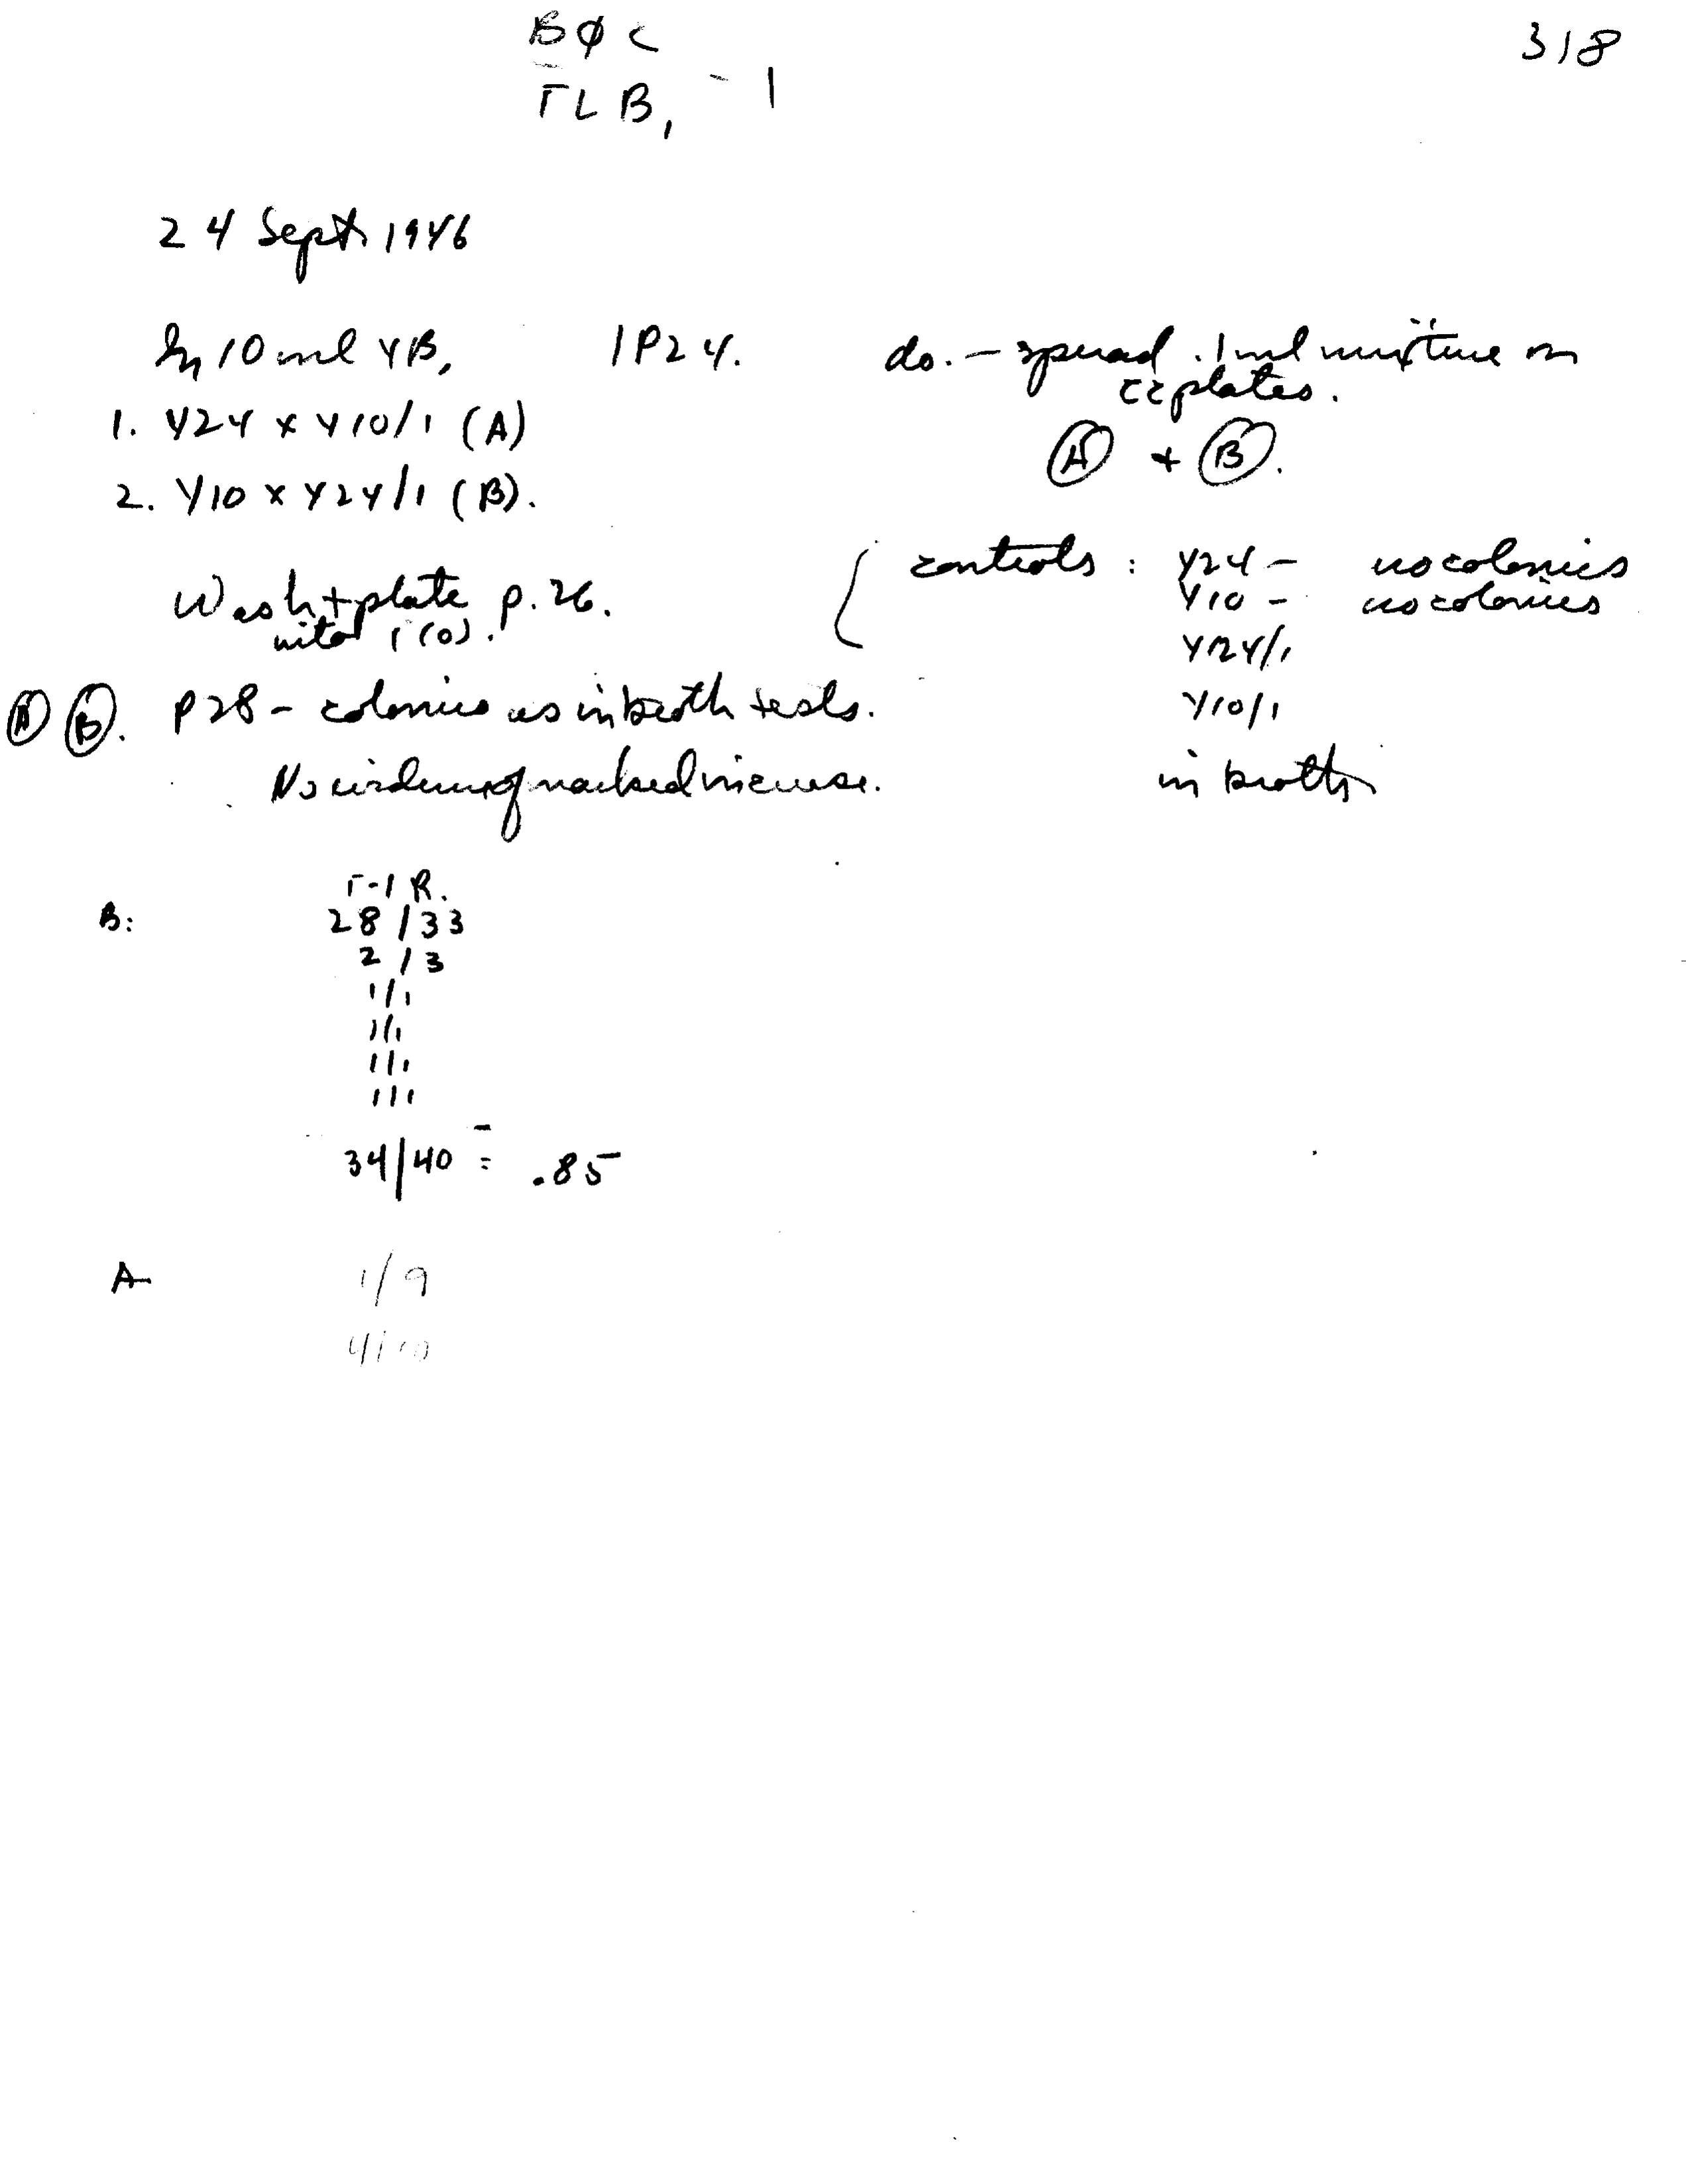 BφC
318
TLB₁ - 1
24 Sept 1946
In 10 ml YB, 1P24.
1. Y24 x Y10/1 (A)
2. Y10 x Y24/1 (B).
Wash + plate p.26.
into 1(0).
A B. P28 - colonies as in broth tests.
No evidence of marked increase.
do. - spread .1 ml mixture on
plates.
A + B.
controls: Y24 - no colonies
Y10 - no colonies
Y24/1
Y10/1
in broth
T-1 R.
B: 28/33
2/3
1/1
1/1
1/1
1/1
34/40 = .85
A 1/9
4/10